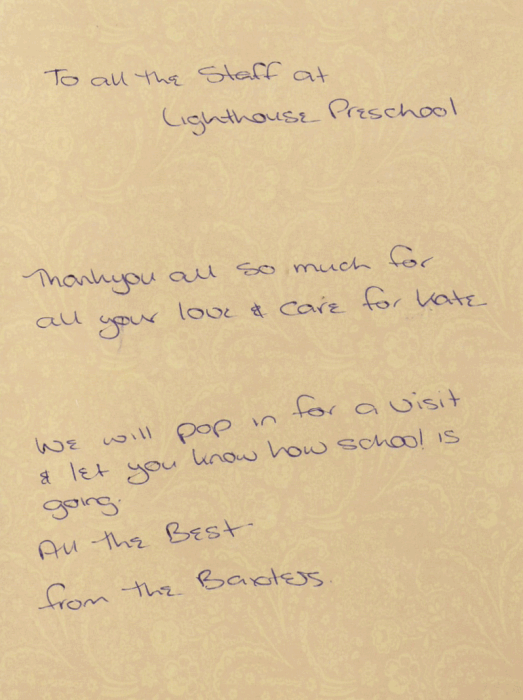 To all the Staff at
Lighthouse Preschool
Thankyou all so much for
all your love & care for Kate
We will pop in for a visit
& let you know how school is
going.
All the Best
from the Baxters.